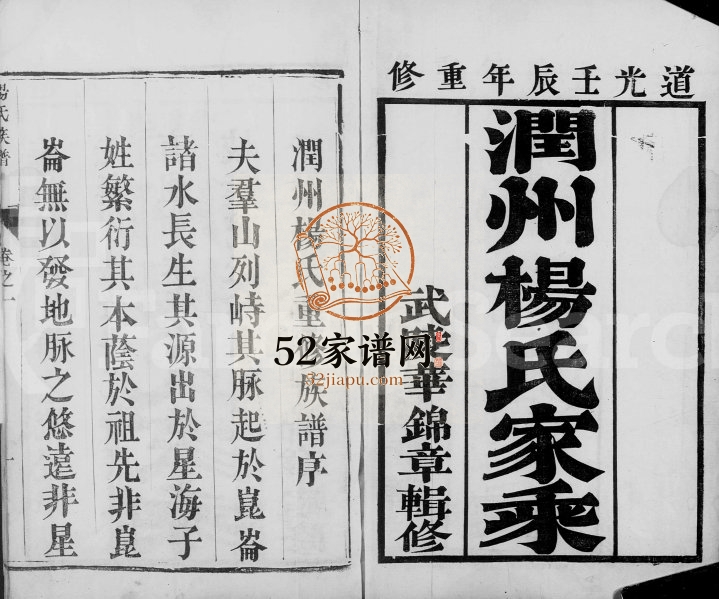 道光壬辰年重修
潤州楊氏家乘
武陵華錦章輯修
潤州楊氏重修族譜序
夫羣山列峙其脉起於崑崙
諸水長生其源出於星海子
姓繁衍其本蔭於祖先非崑
崙無以發地脉之悠遠非星
楊氏族譜
卷之一
一
52家谱网
52jiapu.com